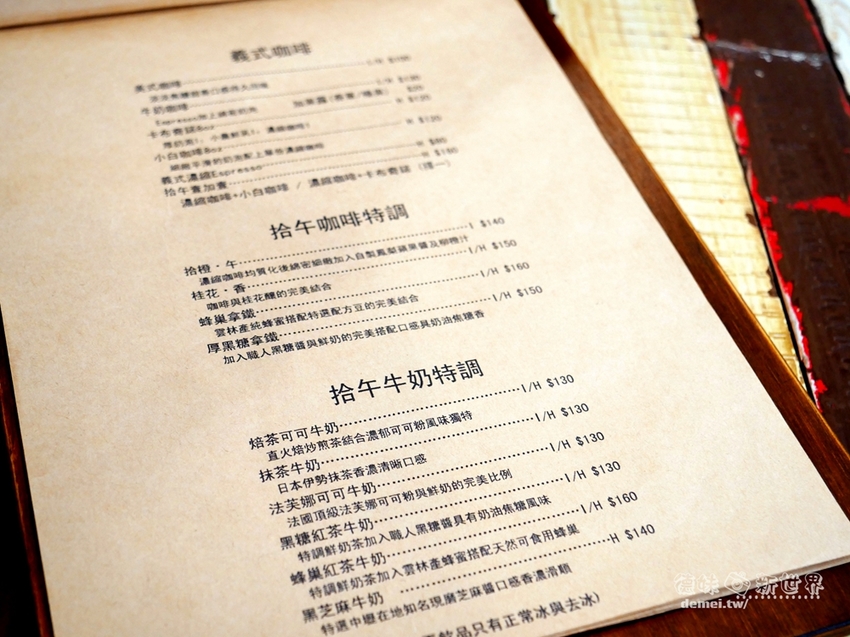 義式咖啡
美式咖啡
牛奶咖啡
Espresso
卡布奇諾8oz $120
小白咖啡8oz
義式濃縮Espresso H $80
拾午賣加賣 H $160
濃縮咖啡+小白咖啡 / 濃縮咖啡+卡布奇諾 (擇一)
拾午咖啡特調
拾橙・午 I $140
濃縮咖啡均質化後綿密細緻加入自製鳳梨蘋果醬及柳橙汁
桂花・香 I/H $150
咖啡與桂花釀的完美結合
蜂巢拿鐵 I/H $160
雲林產純蜂蜜搭配特選配方豆的完美結合
厚黑糖拿鐵 I/H $150
加入職人黑糖醬與鮮奶的完美搭配口感具奶油焦糖香
拾午牛奶特調
焙茶可可牛奶 I/H $130
直火焙炒煎茶結合濃郁可可粉風味獨特
抹茶牛奶 I/H $130
日本伊勢抹茶香濃清晰口感
法芙娜可可牛奶 I/H $130
法國頂級法芙娜可可粉與鮮奶的完美比例
黑糖紅茶牛奶 I/H $130
特調鮮奶茶加入職人黑糖醬具有奶油焦糖風味
蜂巢紅茶牛奶 I/H $160
特調鮮奶茶加入雲林產蜂蜜搭配天然可食用蜂巢
黑芝麻牛奶 H $140
特選中壢在地知名現磨芝麻醬口感香濃滑順
飲品只有正常冰與去冰)
新世界
demei.tw/